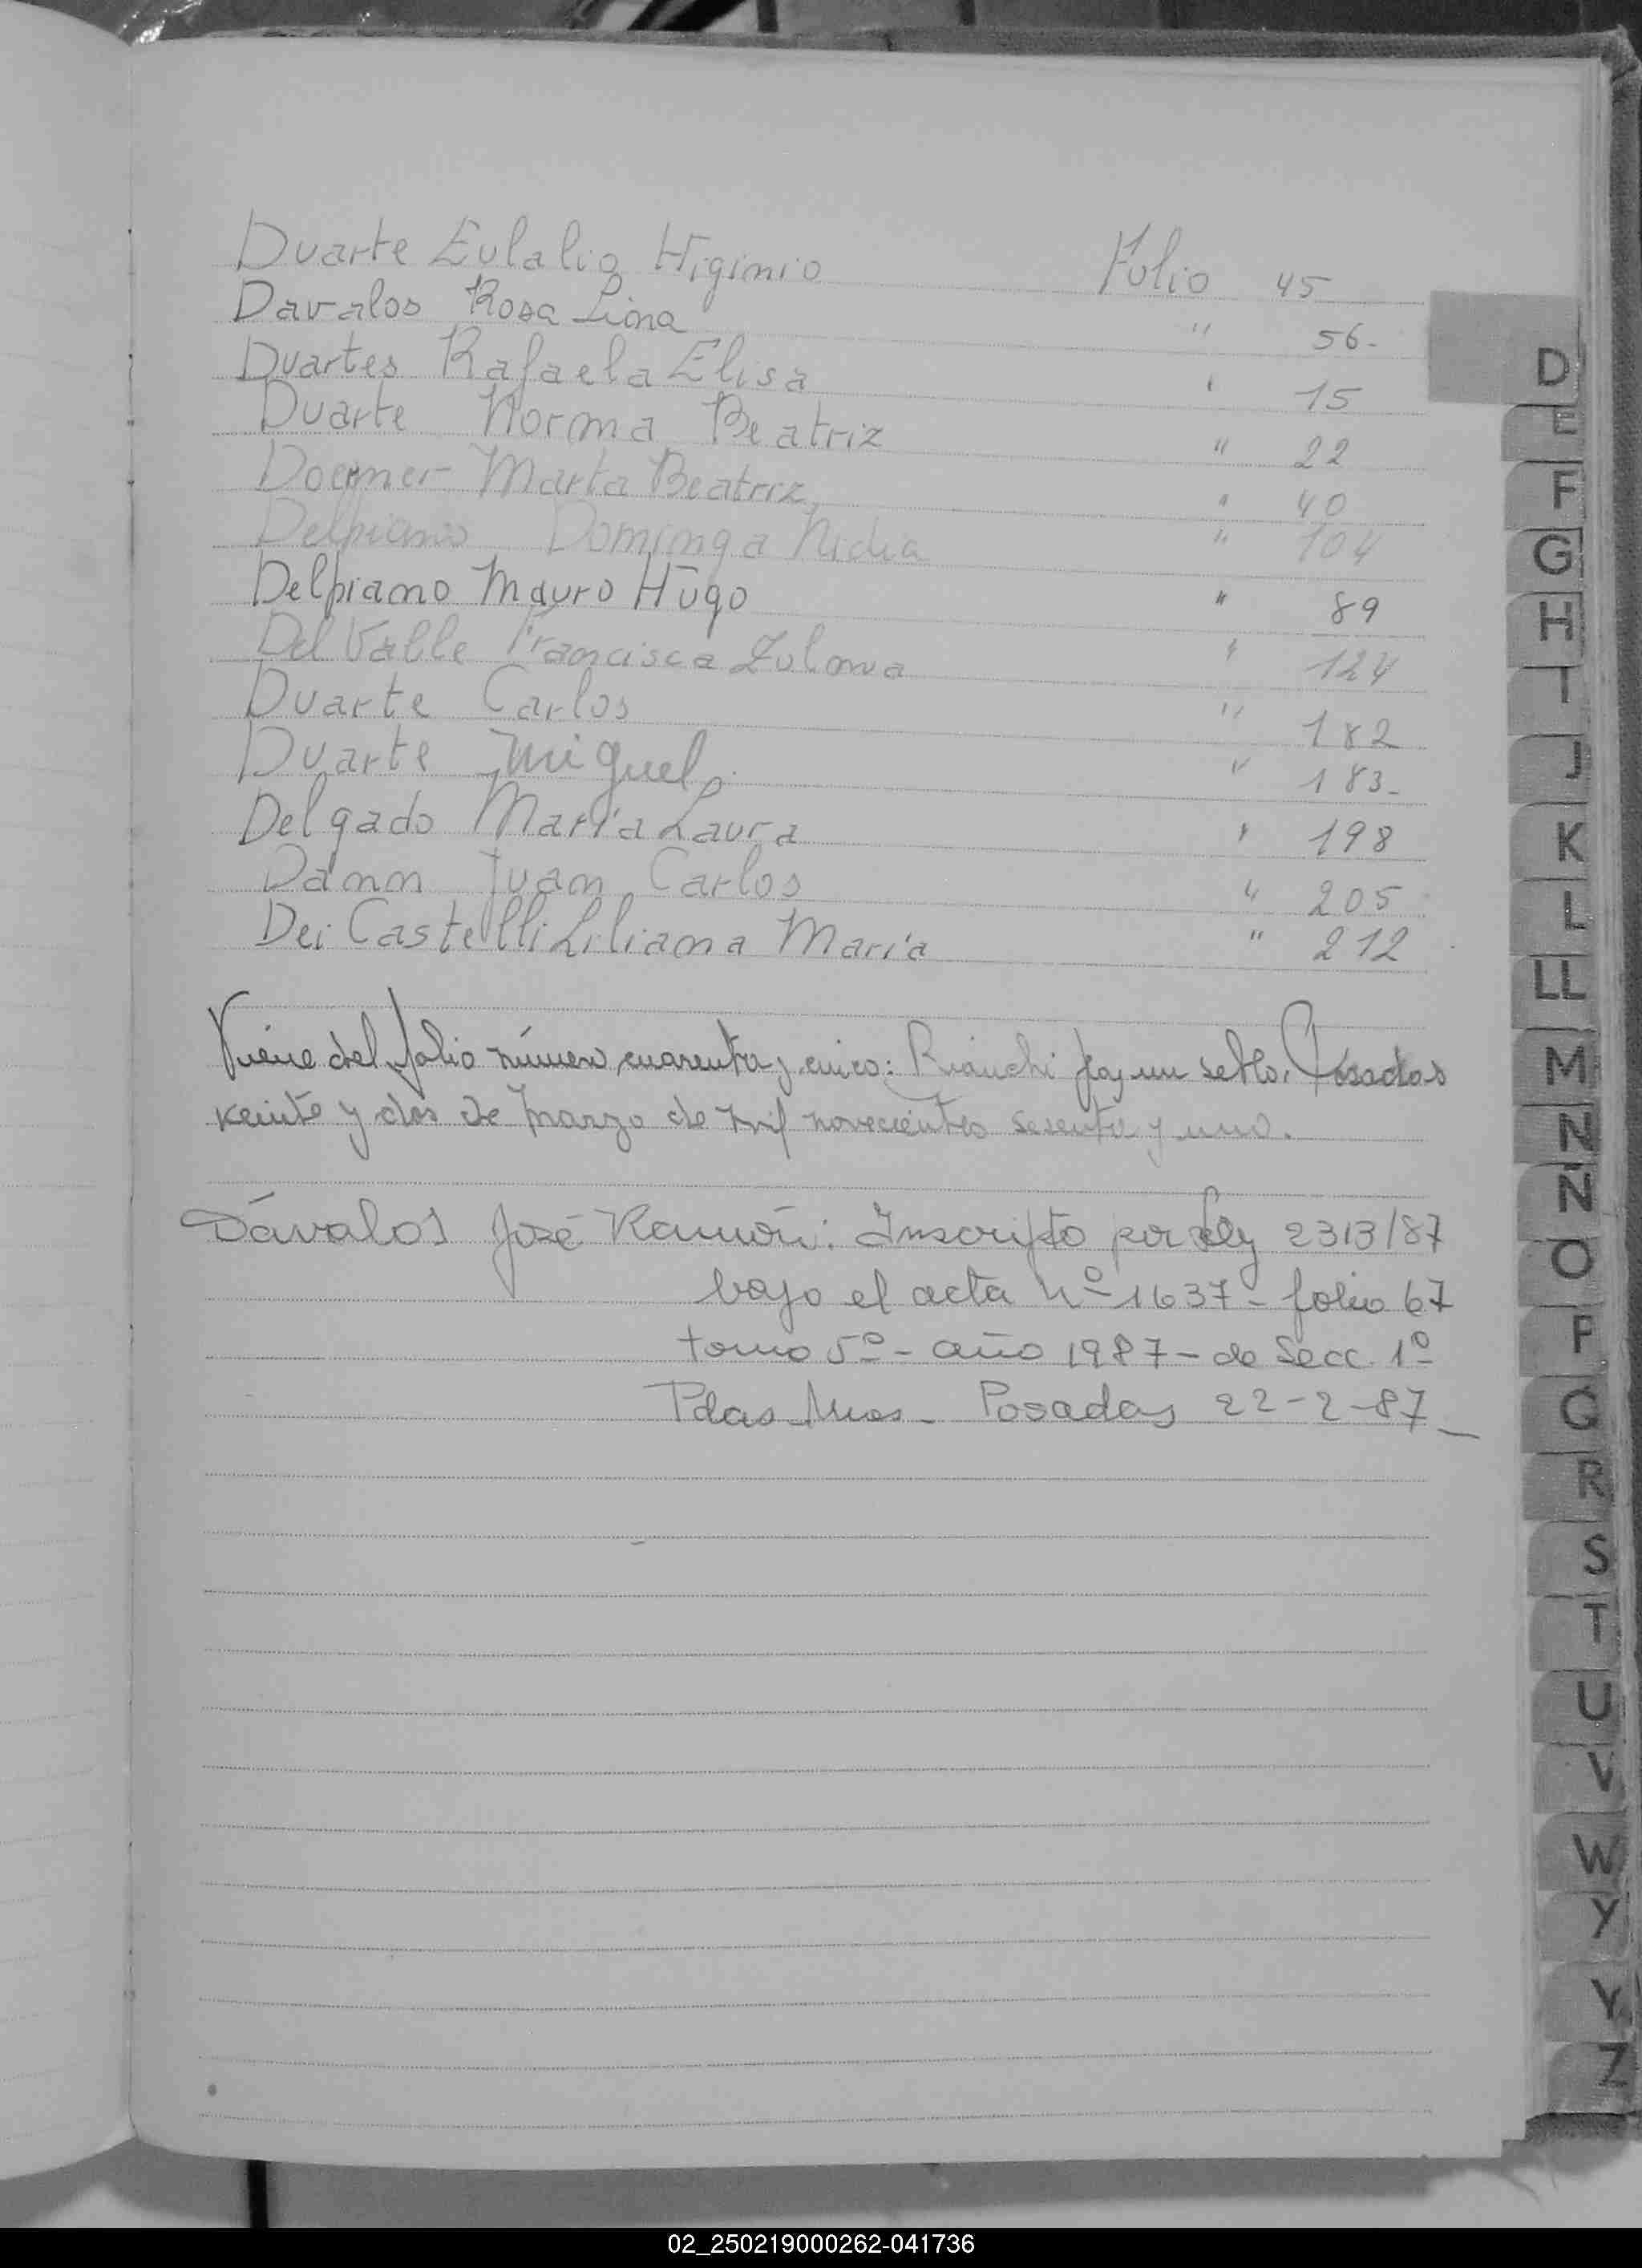 Duarte Eulalio Higinio Folio 45
Davalos Rosa Lina " 56-
Duartes Rafaela Elisa " 15
Duarte Norma Beatriz " 22
Marta Beatriz " 40
Delpiano Dominga Nidia " 104
Delpiano Mauro Hugo " 89
Del Valle Francisca Zulma " 124
Duarte Carlos " 182
Duarte Miguel " 183-
Delgado María Laura " 198
Damm Juan Carlos " 205
Dei Castelli Liliana María " 212
Viene del folio número cuarenta y cinco: Bianchi hay un sello. Posadas
veinte y dos de Marzo de mil novecientos sesenta y uno.
Dávalos José Ramón: Inscripto por Ley 2313/87
bajo el acta Nº 1637 - folio 67
tomo 5º - año 1987 - de Secc. 1º
Pdas Mnes - Posadas 22-2-87
D
E
F
G
H
I
J
K
L
LL
M
N
Ñ
O
P
Q
R
S
T
U
V
W
Y
Y
Z
02_250219000262-041736